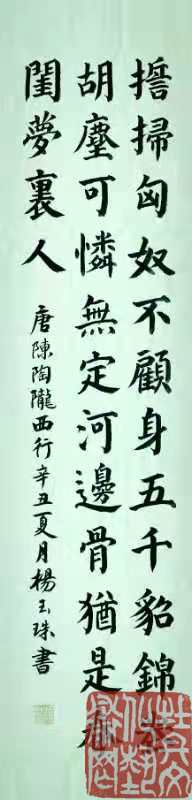 誓掃匈奴不顧身五千貂錦喪
胡塵可憐無定河邊骨猶是春
閨夢裏人
唐陳陶隴西行辛丑夏月楊玉珠書